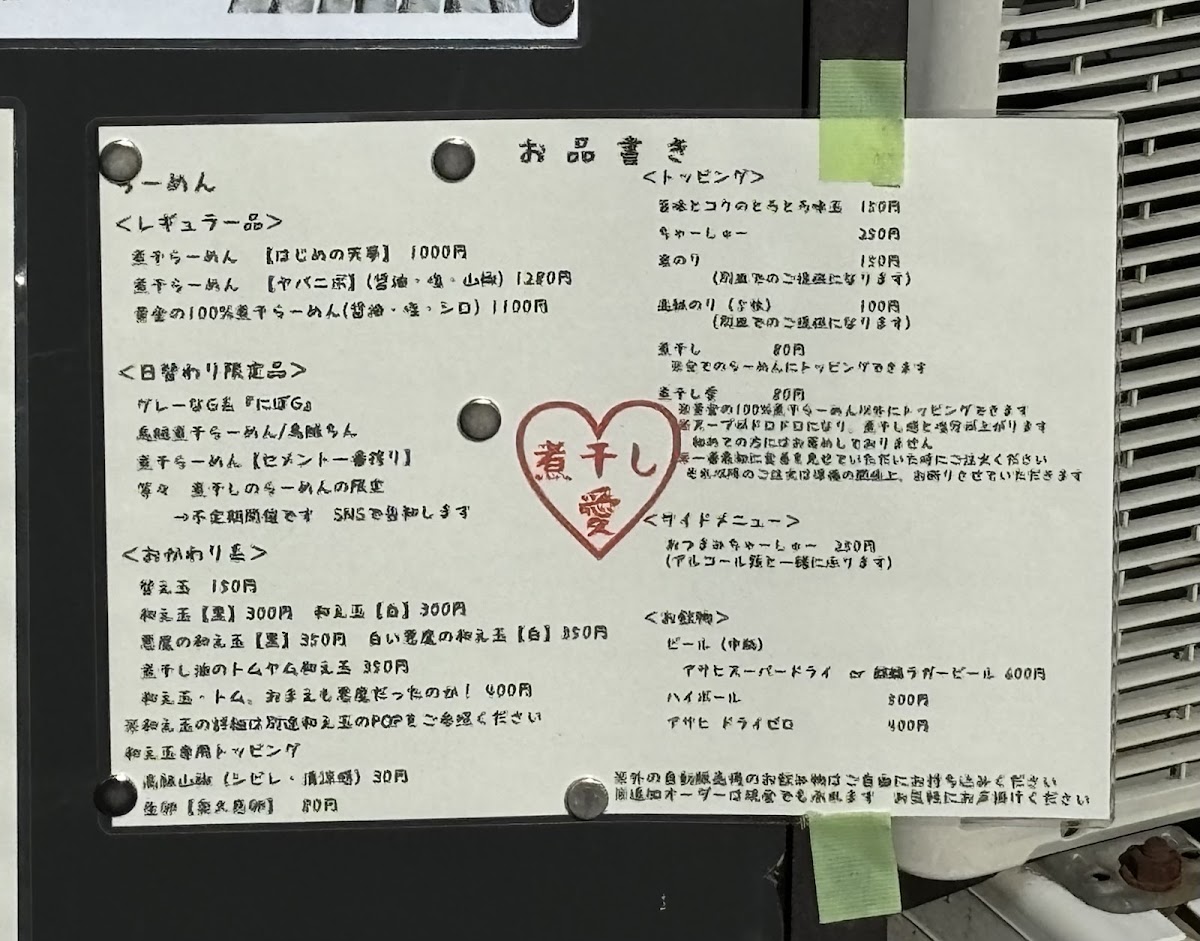 お品書き
らーめん
<レギュラー品>
煮干らーめん 【はじめの天夢】 1000円
煮干らーめん 【ヤバニボ】(醤油・塩・山椒) 1280円
黄金の100%煮干らーめん(醤油・塩・シロ) 1100円
<日替わり限定品>
グレーなG系『にぼG』
煮干らーめん【セメント一番搾り】
等々 煮干しのらーめんの限定
→不定期開催です SNSで告知します
<おかわり玉>
替え玉 150円
和え玉【黒】300円 和え玉【白】300円
悪魔の和え玉【黒】350円 白い悪魔の和え玉【白】350円
煮干し油のトムヤム和え玉 350円
和え玉・トム。おまえも悪魔だったのか! 400円
※和え玉の詳細は別途和え玉のPOPをご参照ください
和え玉専用トッピング
(シビレ・清涼感) 30円
生卵 80円
煮干し
愛
<トッピング>
旨味とコクのとろとろ味玉 150円
ちゃーしゅー 250円
岩のり 150円
(別皿でのご提供になります)
のり(5枚) 100円
(別皿でのご提供になります)
煮干し 80円
※全てのらーめんにトッピングできます
煮干し愛 80円
※黄金の100%煮干らーめん以外にトッピングできます
※スープがドロドロになり、煮干し感と塩分が上がります
初めての方にはお薦めしておりません
※一番最初に食券を見せていただいた時にご注文ください
それ以降のご注文は準備の都合上、お断りさせていただきます
<サイドメニュー>
おつまみちゃーしゅー 250円
(アルコール類と一緒に承ります)
<お飲物>
ビール(中瓶)
アサヒスーパードライ or ラガービール 600円
ハイボール 500円
アサヒ ドライゼロ 400円
※外の自動販売機のお飲み物はご自由にお持ち込みください
※追加オーダーは現金でも承れます お気軽にお声掛けください